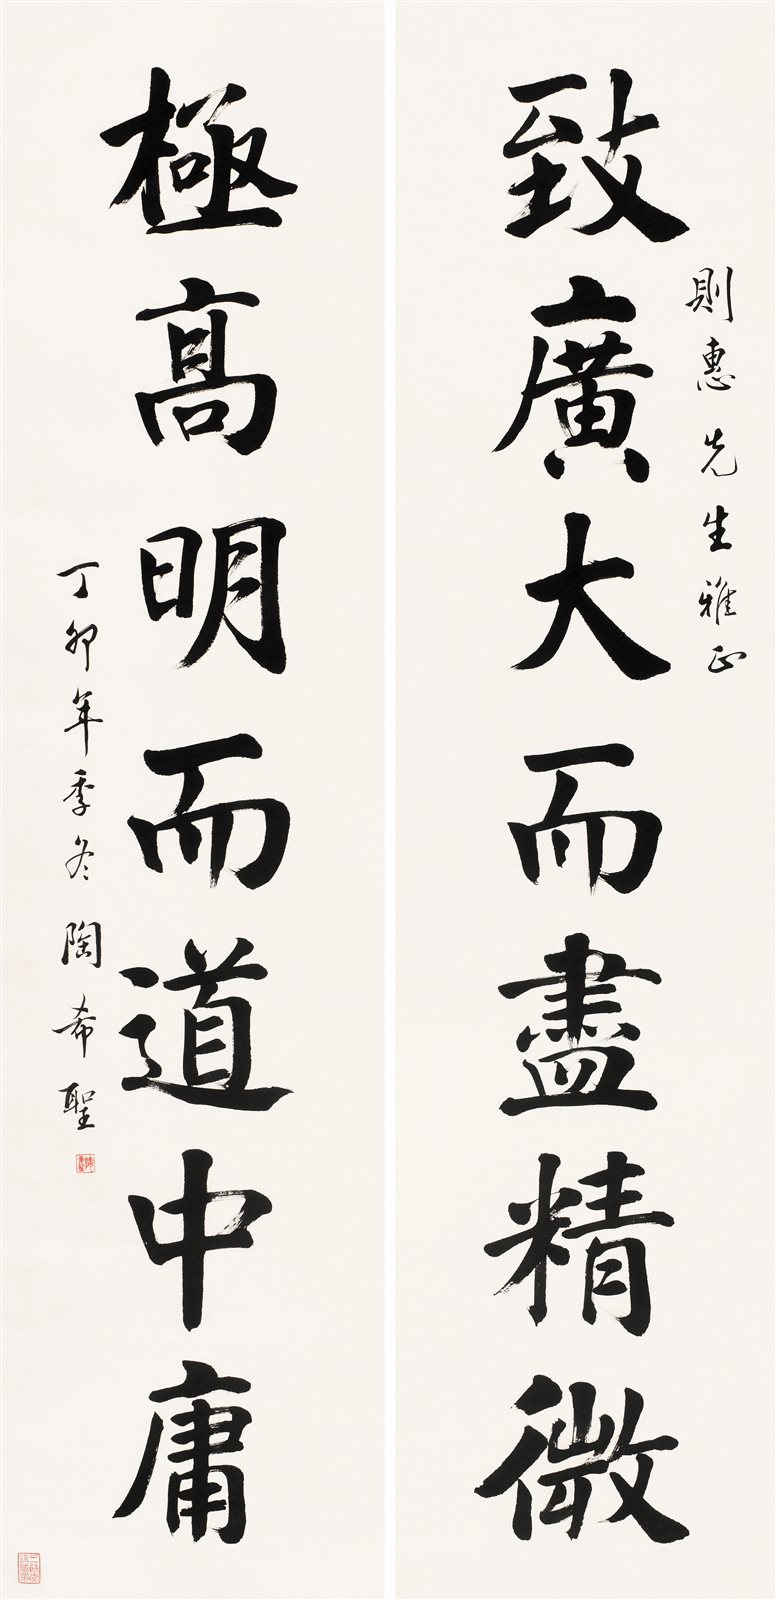 致廣大而盡精微
則惠先生雅正
極高明而道中庸
丁卯年季冬陶希聖